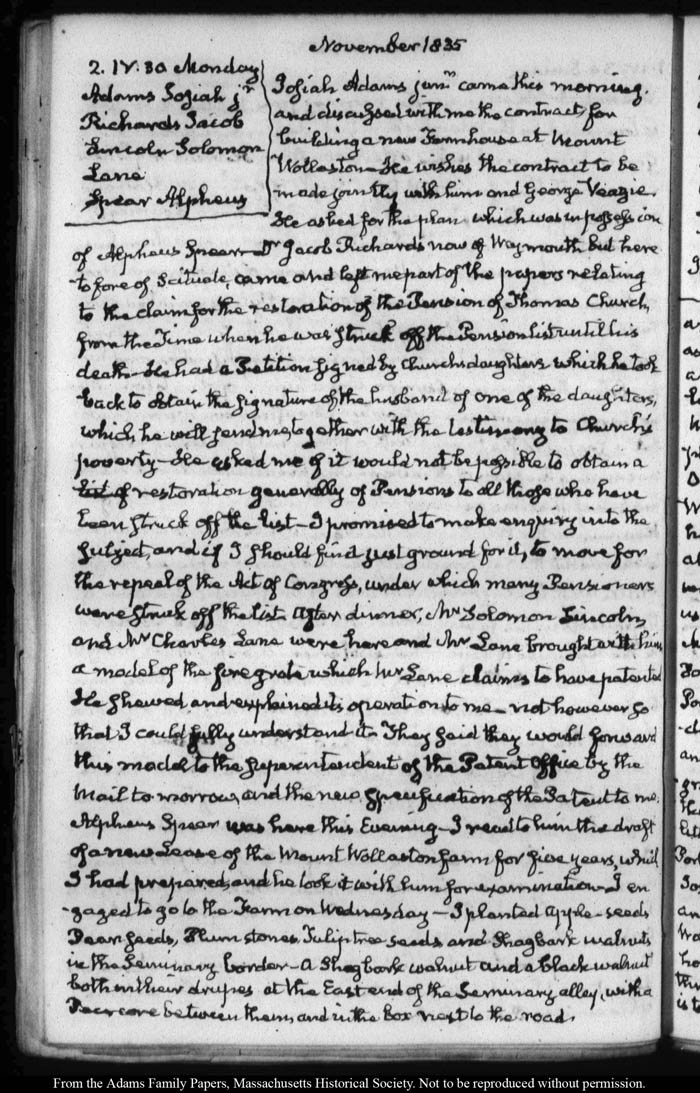 November 1835
2. IV:30 Monday
Adams Josiah jr
Richards Jacob
Lincoln Solomon
Lane
Spear Alpheus
Josiah Adams junr. came this morning.
and discussed with me the contract for
building a new Farmhouse at Mount
Wollaston—He wishes the contract to be
made jointly with him and George Veazie.
He asked for the plan which was in possession
of Alpheus Spear—Dr Jacob Richards now of Weymouth but here
-tofore of Scituate, came and left me part of the papers relating
to the claim for the restoration of the Pension of Thomas Church,
from the Time when he was struck off the Pension list until his
death—He had a Petition signed by Church's daughters which he took
back to obtain the signature of the husband of one of the daughters,
which he will send me, together with the testimony to Church's
poverty—He asked me if it would not be possible to obtain a
list of restoration generally of Pensions to all those who have
been struck off the list—I promised to make enquiry into the
subject, and if I should find just ground for it, to move for
the repeal of the Act of Congress, under which many Pensioners
were struck off the list. After dinner, Mr Solomon Lincoln,
and Mr Charles Lane were here and Mr Lane brought with him
a model of the fire grate which Mr Lane claims to have patented
He shewed and explained its operation to me—not however so
that I could fully understand it—They said they would forward
this model to the Superintendent of the Patent Office by the
Mail to morrow, and the new specification of the Patent to me.
Alpheus Spear was here this Evening—I read to him the draft
of a new Lease of the Mount Wollaston farm for five years, which
I had prepared, and he took it with him for examination—I en
-gaged to go to the Farm on Wednesday—I planted apple-seeds
Pear seeds, Plum stones, Tulip tree-seeds and Shagbark walnuts
in the Seminary border—a Shagbark walnut and a black walnut
both in their drupes at the East end of the Seminary alley, with a
Pear core between them, and in the box next to the road.
From the Adams Family Papers, Massachusetts Historical Society. Not to be reproduced without permission.